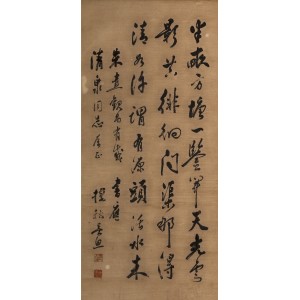 半畝方塘一鑒開天光雲
影共徘徊問渠那得
清如許謂有源頭活水來
朱熹觀書有感
清泉同志屬正
書應